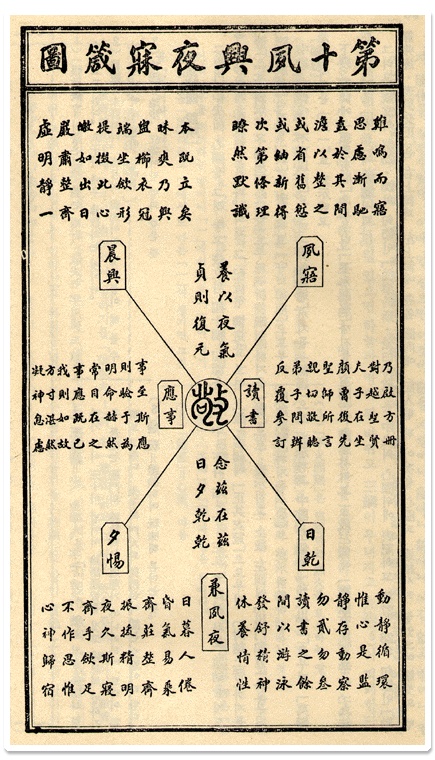 第十夙興夜寐箴圖
雞鳴而寤
思慮漸馳
盍於其間
澹以整之
或省舊愆
或紬新得
次第條理
瞭然默識
本既立矣
昧爽乃興
盥櫛衣冠
端坐斂形
提掇此心
皦如出日
嚴肅整齊
虛明靜一
夙寤
晨興
養以夜氣
貞則復元
乃啟方冊
對越聖賢
夫子在坐
顏曾後先
聖師所言
親切敬聽
弟子問辨
反覆參訂
讀書
敬
應事
事至斯應
則驗于為
明命赫然
常目在之
事應既已
我則如故
方寸湛然
凝神息慮
念茲在茲
日夕乾乾
日乾
夕惕
兼夙夜
動靜循環
惟心是監
靜存動察
勿貳勿參
讀書之餘
間以游泳
發舒精神
休養情性
日暮人倦
昏氣易乘
齊莊整齊
振拔精明
夜久斯寢
齊手斂足
不作思惟
心神歸宿